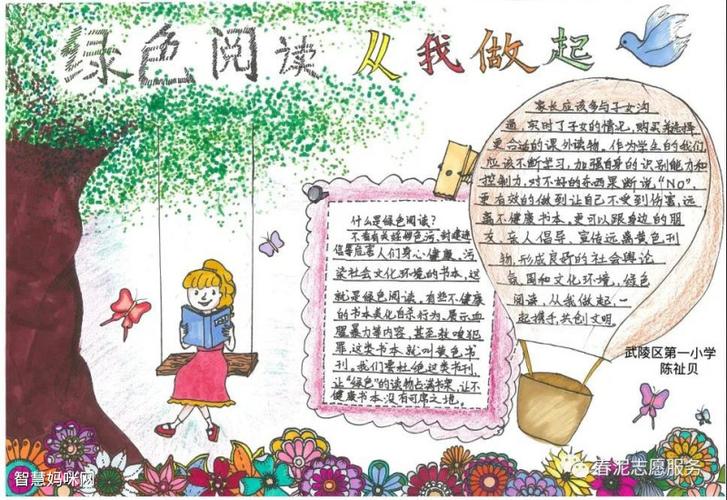 绿色阅读 从我做起
什么是绿色阅读?
不看有关淫秽色污,封建迷
信等危害人们身心健康。污
染社会文化环境的书本,这
就是绿色阅读。有些不健康
的书本美化自杀行为,展示血
腥暴力等内容,甚至教唆犯
罪,这类书本就叫黄色书
刊。我们要杜绝这类书刊,
让“绿色”的读物占满书架,让不
健康书本没有可席之地。
家长应该多与子女沟
通,实时了子女的情况,购买并选择
更合适的课外读物。作为学生的我们
应该不断学习,加强自身的识别能力和
控制力,对不好的东西果断说,“NO”.
更有效的做到让自己不受到伤害,远
离不健康书本。更可以跟身边的朋
友、亲人倡导、宣传远离黄色刊
物,形成良好的社会舆论
氛围和文化环境,绿色
阅读,从我做起,一
起携手,共创文明。
武陵区第一小学
陈祉贝
智慧妈咪网
春泥志愿服务